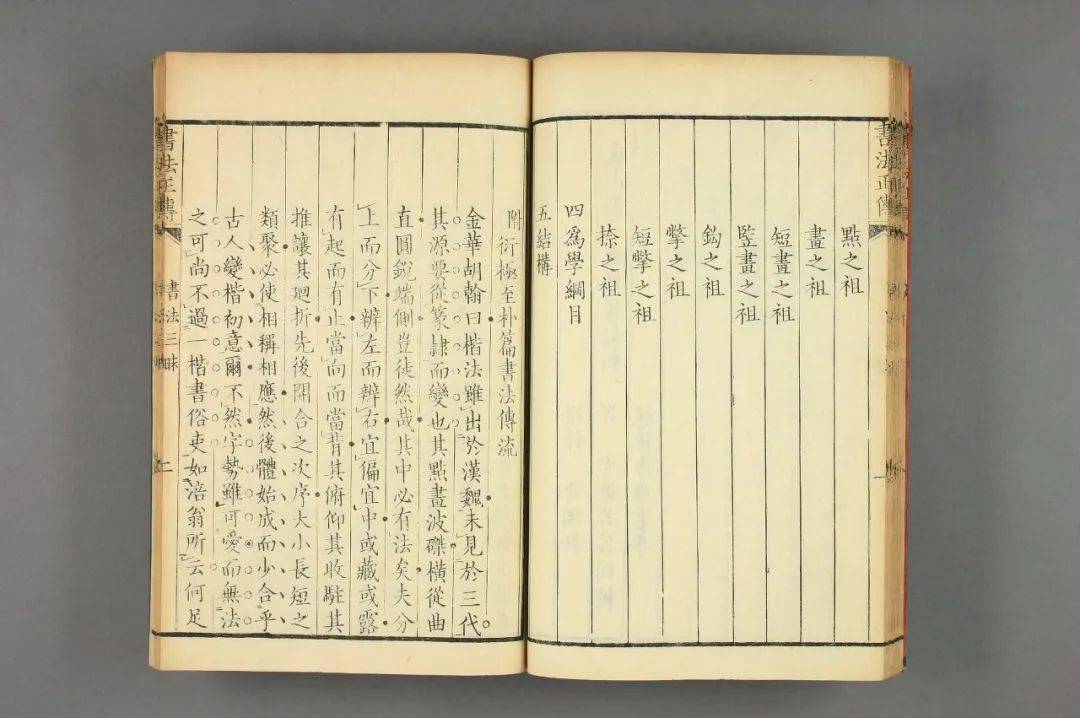 書法正傳
點之祖
畫之祖
短畫之祖
監畫之祖
鈎之祖
撆之祖
短撆之祖
捺之祖
四爲學綱目
五結構
附衍極至朴篇書法傳流
金華胡翰曰楷法雖出於漢魏未見於三代
其源要從篆隸而變也其點畫波磔橫從曲
直圓銳端側豈徒然哉其中必有法矣夫分
上而分下辨左而辨右宜偏宜中或藏或露
有起而有止當向而當背其俯仰其收駐其
推讓其廻折先後開合之次序大小長短之
類聚必使相稱相應然後體始成而少合乎
古人變楷初意爾不然字勢雖可愛而無法
之可尚不過一楷書俗吏如涪翁所云何足
書法正傳
書法三昧
二